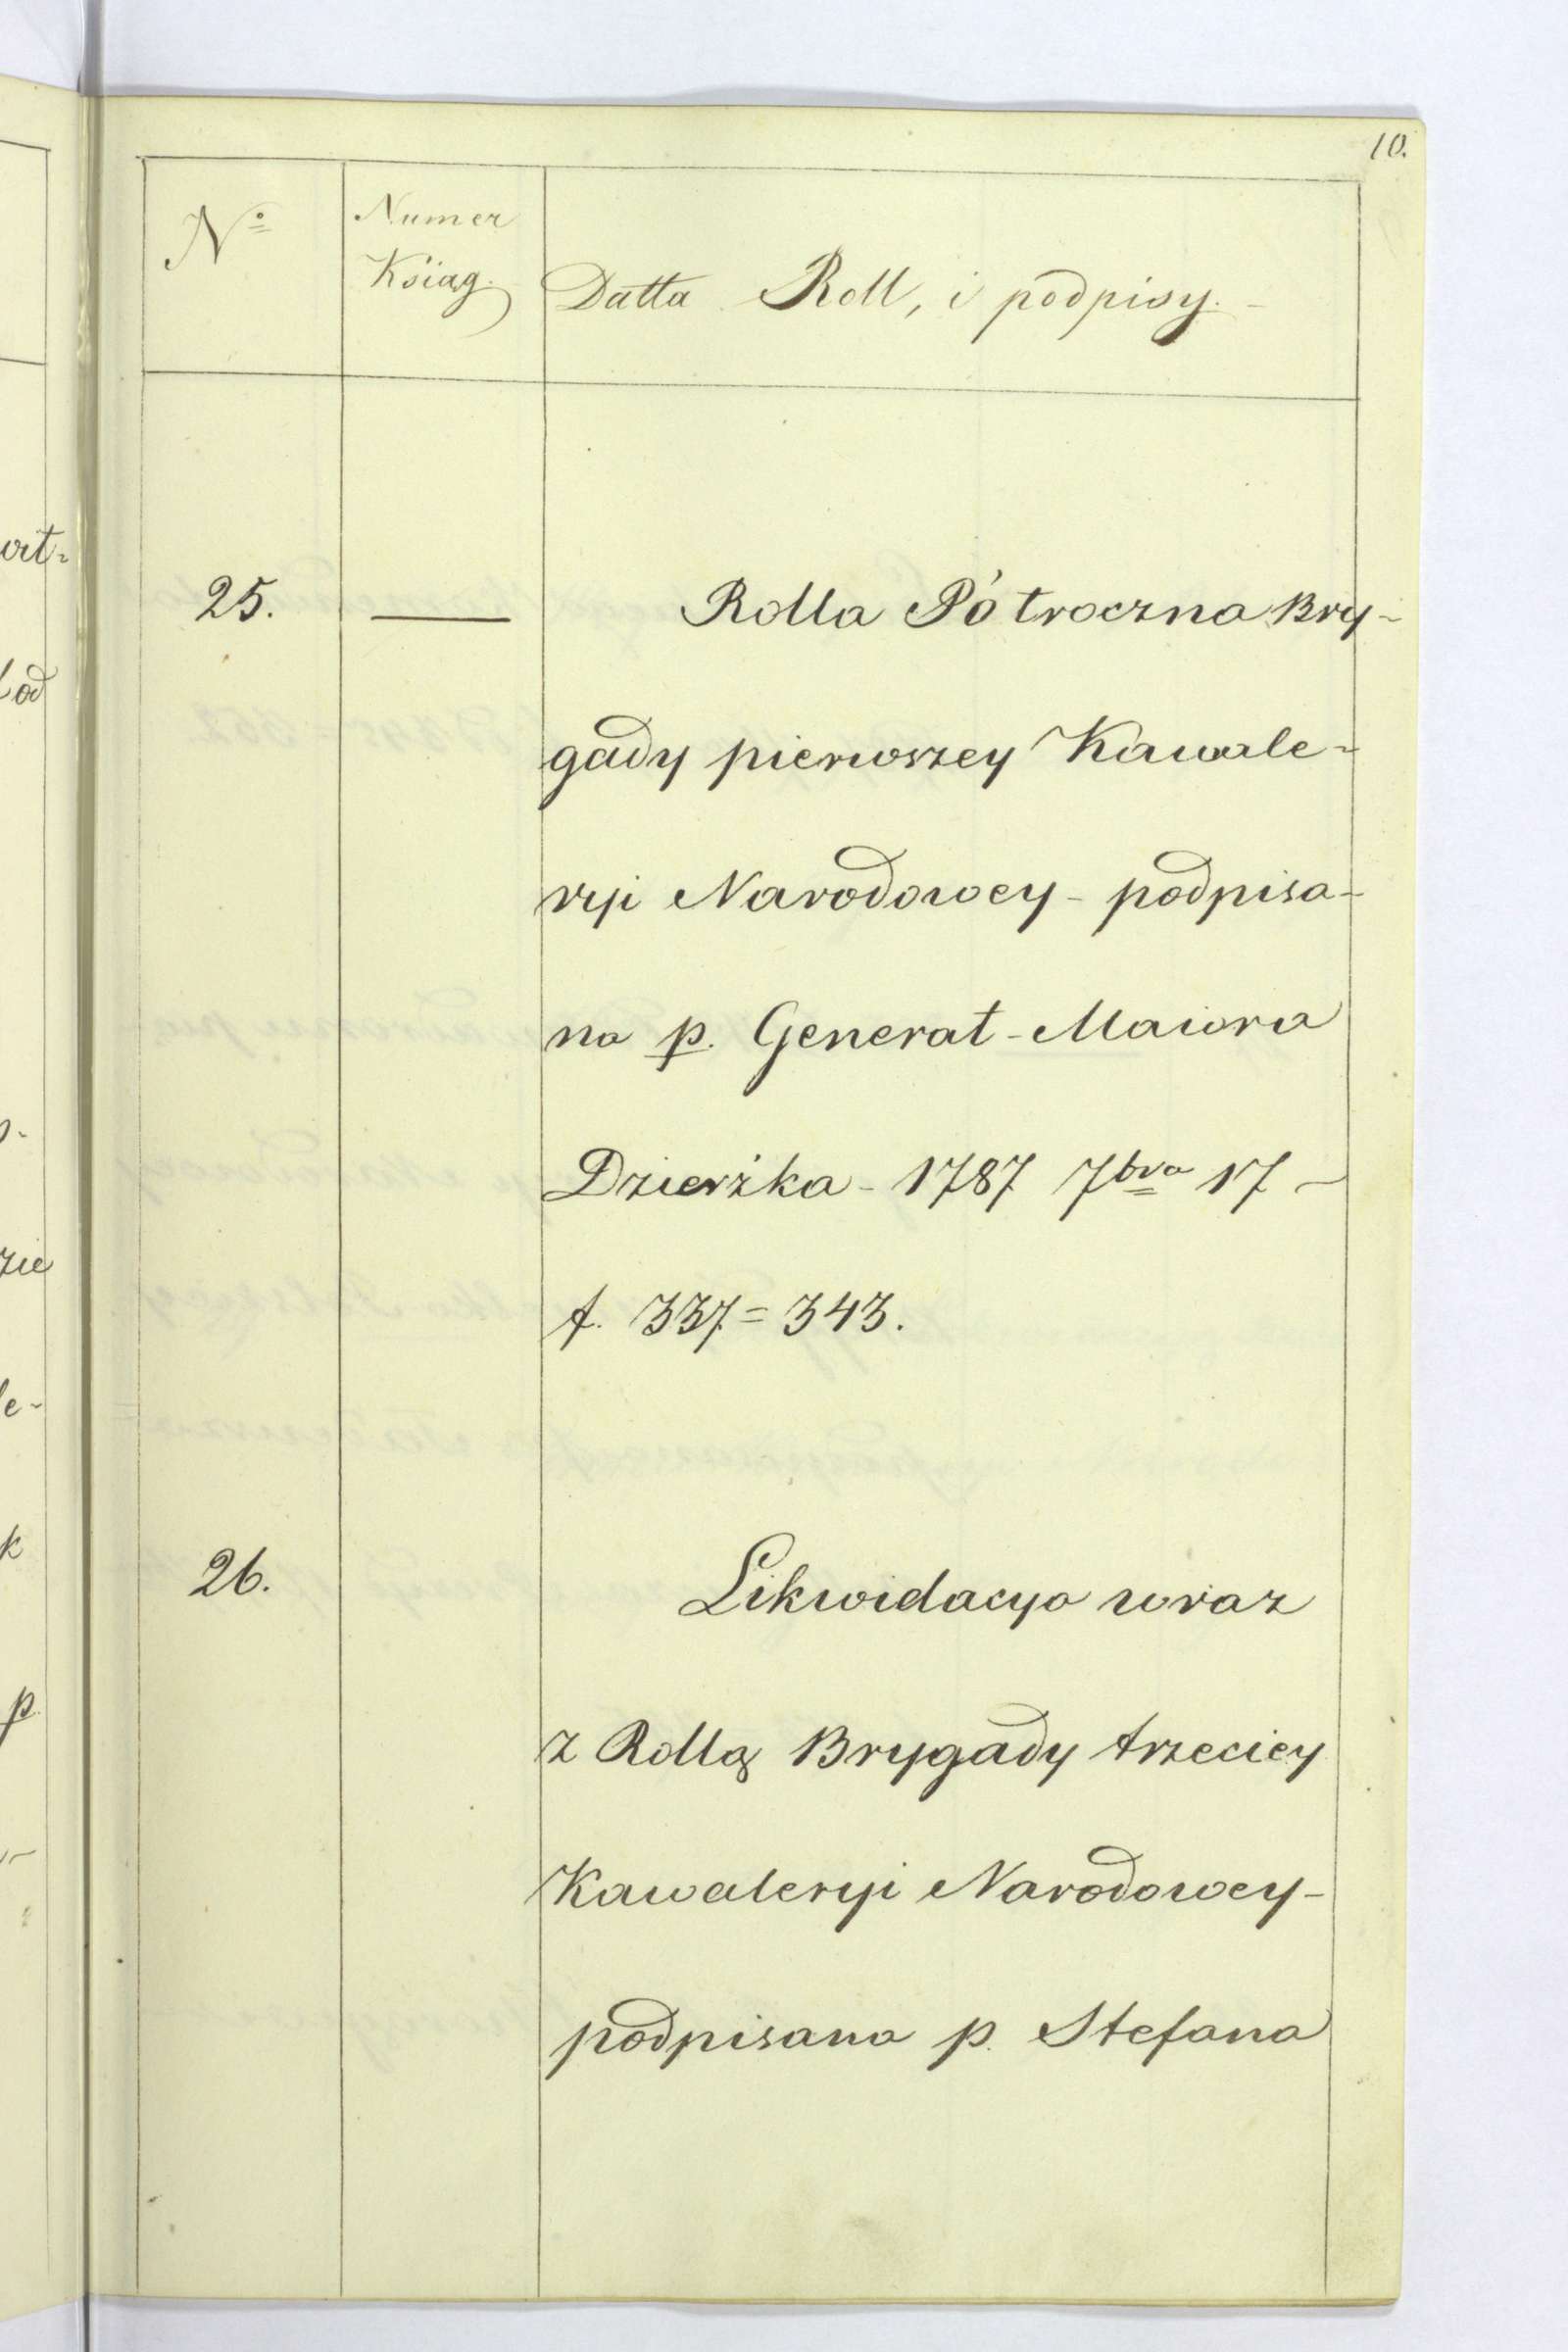 10.
Nº
Numer
Ksiąg.
Datta Roll, i podpisy. -
25.
Rolla Półroczna Bry-
gady pierwszey Kawale-
ryi Narodowey - podpisa-
na p. Generał - Maiora
Dzierżka - 1787 7bra 17 -
f. 337 = 343.
26.
Likwidacya wraz
z Rollą Brygady trzeciey
Kawaleryi Narodowey -
podpisana p. Stefana